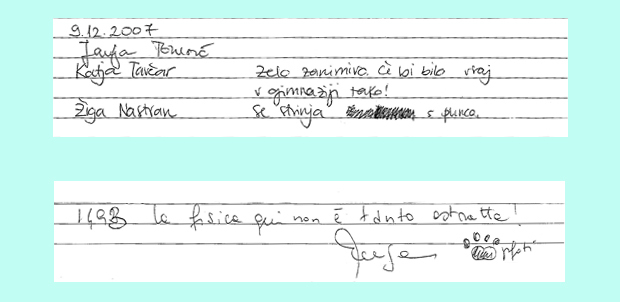 9.12.2007
Katja Tavčar Zelo zanimivo. Če bi bilo vsaj
v gimnaziji tako!
Žiga Nastran se strinja s punco.
la fisica qui non è tanto astratta!